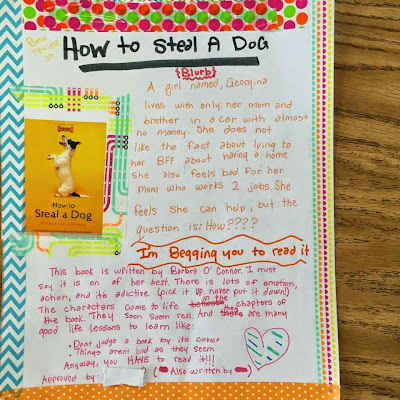 Book
review
on
How to Steal A Dog
{Blurb}
A girl named, Georgina
lives with only her mom and
brother in a car with almost
no money. She does not
like the fact about lying to
her BFF about having a home
She also feels bad for her
mom who works 2 jobs. She
feels she can help, but the
question is: How????
How to
Steal a Dog
I'm Begging you to read it
This book is written by Barbra O' Connor. I must
say it is on of her best. There is lots of emotion,
action, and it's adictive (pick it up, never put it down!)
The characters come to life in the chapters of
the book. They soon seem real. And there are many
good life lessons to learn like:
• Dont judge a book by its cover
• Things aren't bad as they seem
Anyway, you HAVE to read it!!!
Approved by: (Also written by )